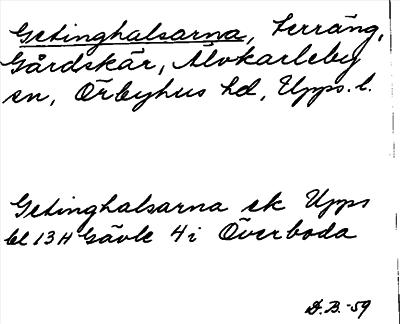 Getinghalsarna, Terräng,
Gårdskär, Älvkarleby
sn, Örbyhus hd, Upps. l.
Getinghalsarna ek Upps
bl 13 H Gävle 4 i Överboda
D.B.-59